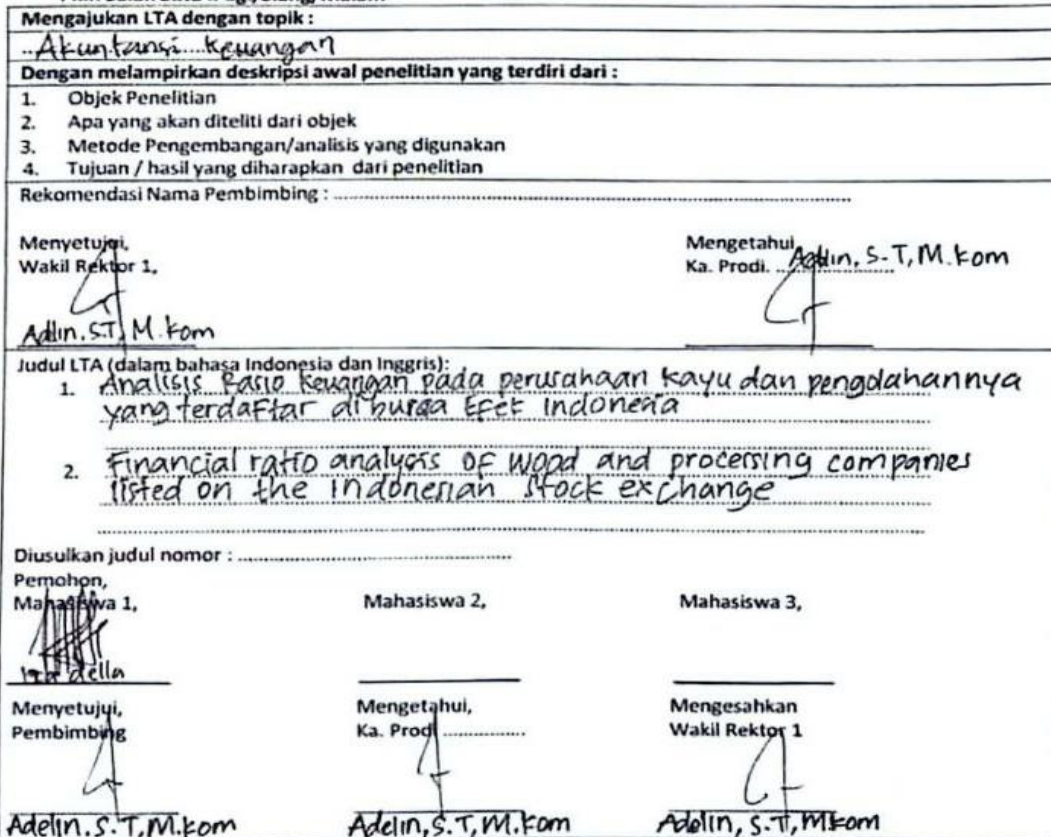 Mengajukan LTA dengan topik :
Akuntansi keuangan
Dengan melampirkan deskripsi awal penelitian yang terdiri dari :
1. Objek Penelitian
2. Apa yang akan diteliti dari objek
3. Metode Pengembangan/analisis yang digunakan
4. Tujuan / hasil yang diharapkan dari penelitian
Rekomendasi Nama Pembimbing :
Menyetujui,
Wakil Rektor 1,
Adlin, S.T, M.Kom
Mengetahui,
Ka. Prodi. Adlin, S.T, M.Kom
Judul LTA (dalam bahasa Indonesia dan Inggris):
1. Analisis Rasio keuangan pada perusahaan kayu dan pengolahannya
yang terdaftar di bursa Efek Indonesia
2. Financial ratio analysis of wood and processing companies
listed on the Indonesian stock exchange
Diusulkan judul nomor :
Pemohon,
Mahasiswa 1,
della
Mahasiswa 2,
Mahasiswa 3,
Menyetujui,
Pembimbing
Adelin, S.T, M.Kom
Mengetahui,
Ka. Prodi
Adelin, S.T, M.Kom
Mengesahkan
Wakil Rektor 1
Adelin, S.T, M.Kom